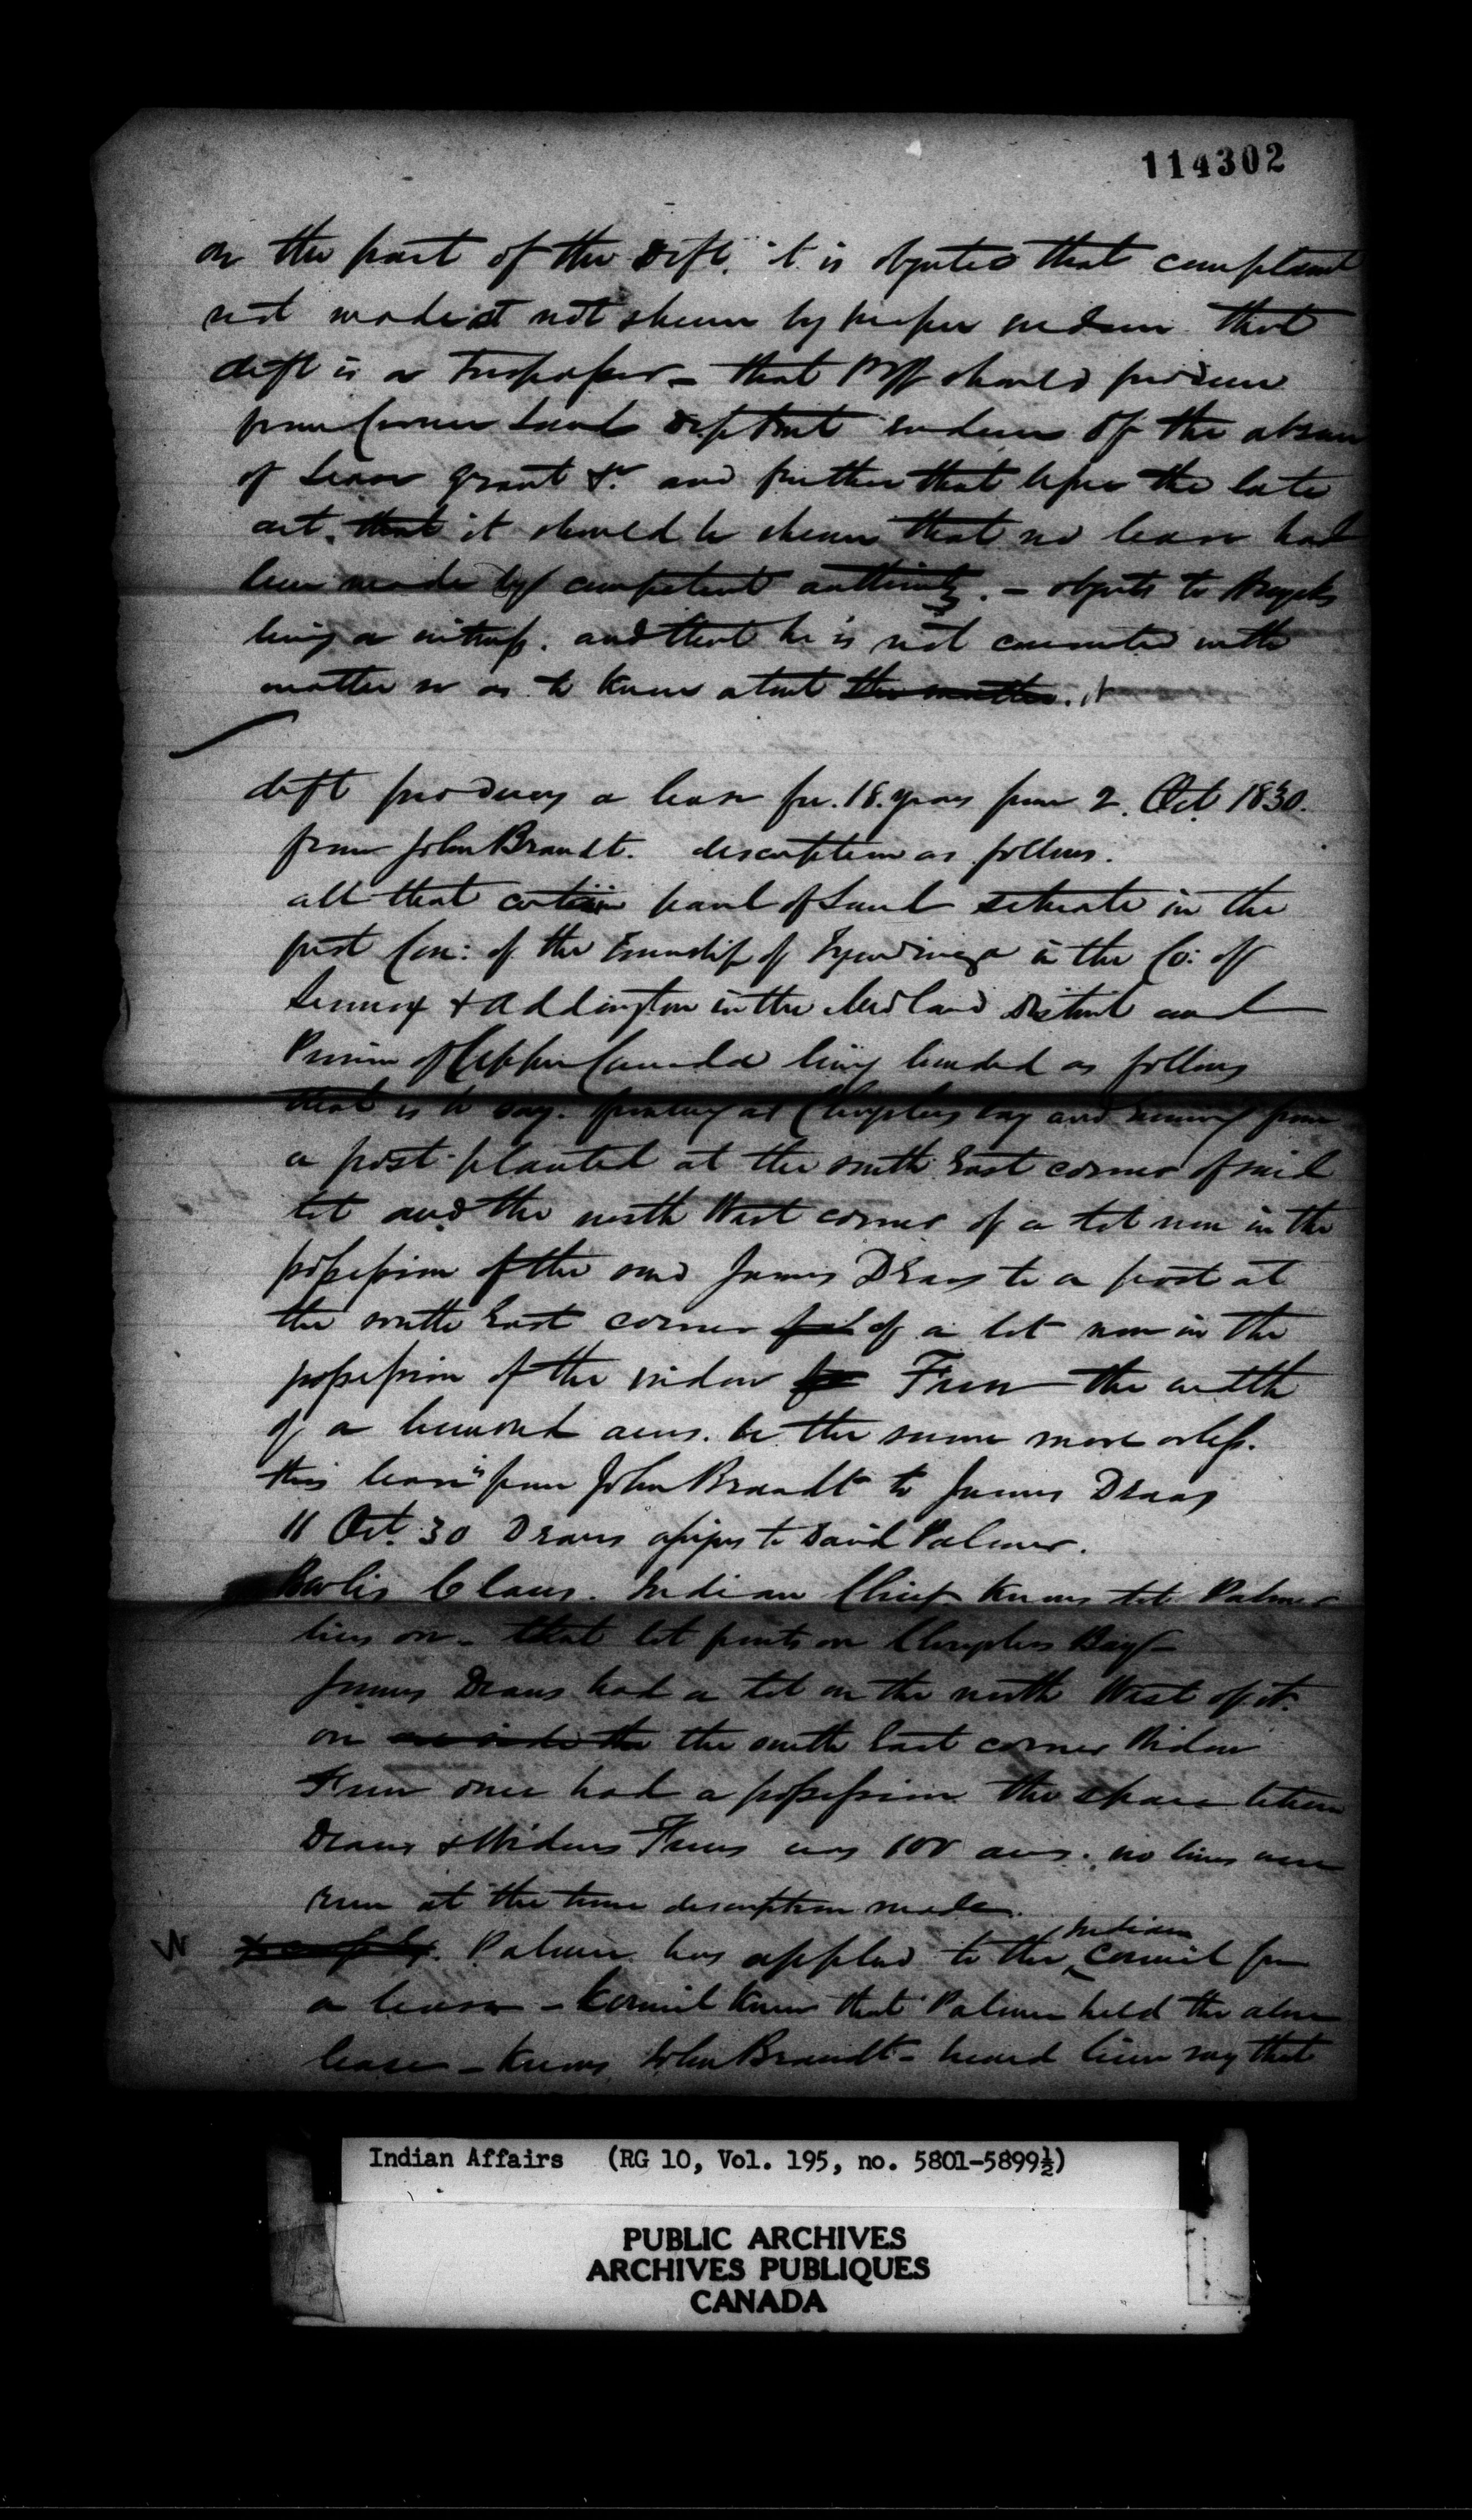 114302
on the part of the Deft. it is objected that complaint
not made not shewn by proper medium that
deft is a Trespasser – that Plff should produce
from Crown Land Deptmt evidence of the absence
of Lease grant &c and further that before the late
act. that it should be shewn that no lease had
been made by competent authority. – objects to
being a witness. and that he is not connected with
matter so as to know about the matter. it
deft produces a lease for 18 years from 2. Oct. 1830.
from John Brandt. description as follows.
all that certain parcel of Land situate in the
first Con: of the Township of Tyendinaga in the Co: of
Lennox & Addington in the Midland District and
Province of Upper Canada being bounded as follows
that is to say. fronting at Chrysler's bay and running from
a post planted at the south East corner of said
lot and the north West corner of a lot now in the
possession of the said James Deans to a post at
the south East corner of a lot now in the
possession of the widow the width
of a hundred acres. be the same more or less.
this lease is from John Brandt to James Deans
11 Oct. 30 Deans assigns to David Palmer.
Claus. Indian Chief knows lot Palmer
lives on – that lot fronts on Chrysler's Bay –
James Deans had a lot on the north West of it.
on the south East corner Widow
once had a possession the space between
Deans & Widow was 100 acres. no lines were
run at the time description made.
Palmer has applied to the Indian Council for
a lease – Council knew that Palmer held the above
lease – knows John Brandt – heard him say that
Indian Affairs (RG 10, Vol. 195, no. 5801-5899½)
PUBLIC ARCHIVES
ARCHIVES PUBLIQUES
CANADA